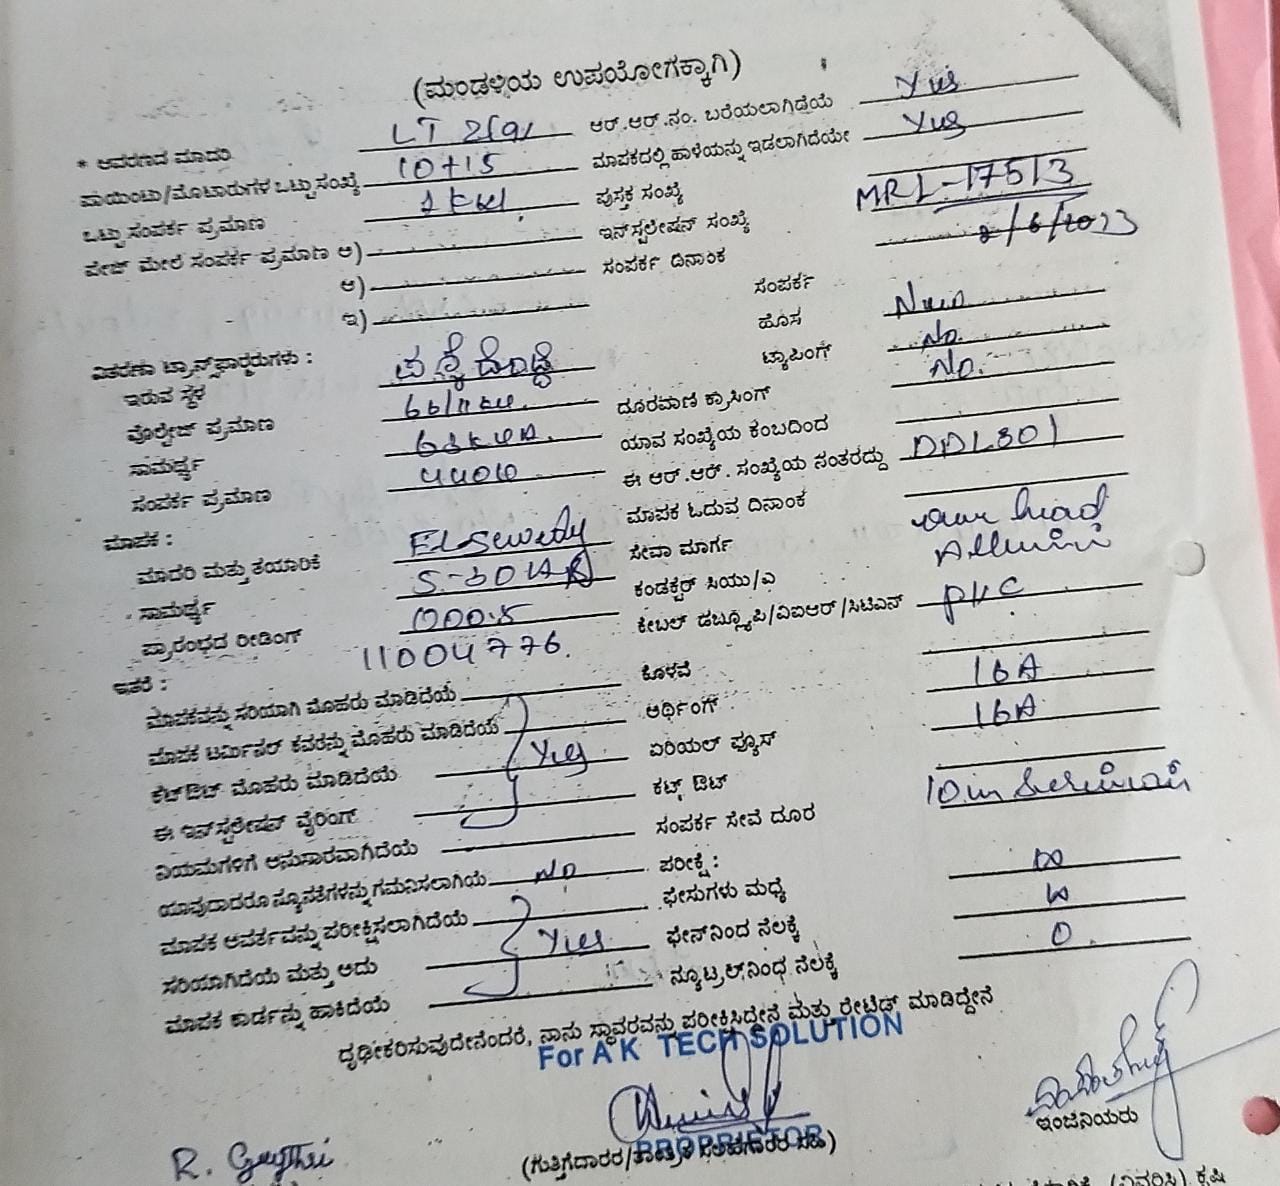 (ಮಂಡಳಿಯ ಉಪಯೋಗಕ್ಕಾಗಿ)
* ಆವರಣದ ಮಾದರಿ LT 2(a) ಆರ್.ಆರ್.ನಂ. ಬರೆಯಲಾಗಿದೆಯೆ Yes
ಪಾಯಿಂಟು/ಮೋಟಾರುಗಳ ಒಟ್ಟು ಸಂಖ್ಯೆ 10+15 ಮಾಪಕದಲ್ಲಿ ಹಾಳೆಯನ್ನು ಇಡಲಾಗಿದೆಯೇ Yes
ಒಟ್ಟು ಸಂಪರ್ಕ ಪ್ರಮಾಣ 1 KW. ಪುಸ್ತಕ ಸಂಖ್ಯೆ
ಪೇಜ್ ಮೇಲೆ ಸಂಪರ್ಕ ಪ್ರಮಾಣ ಅ) ಇನ್‌ಸ್ಟಲೇಷನ್ ಸಂಖ್ಯೆ MRL-17513
ಆ) ಸಂಪರ್ಕ ದಿನಾಂಕ 2/6/2023
ಇ) ಸಂಪರ್ಕ
ವಿತರಣಾ ಟ್ರಾನ್ಸ್‌ಫಾರ್ಮರುಗಳು : ಹೊಸ No
ಇರುವ ಸ್ಥಳ ಟ್ಯಾಪಿಂಗ್ No.
ವೊಲ್ಟೇಜ್ ಪ್ರಮಾಣ 66/11 KV. ದೂರವಾಣಿ ಕ್ರಾಸಿಂಗ್
ಸಾಮರ್ಥ್ಯ 63 KVA. ಯಾವ ಸಂಖ್ಯೆಯ ಕಂಬದಿಂದ
ಸಂಪರ್ಕ ಪ್ರಮಾಣ 440V ಈ ಆರ್.ಆರ್. ಸಂಖ್ಯೆಯ ನಂತರದ್ದು DDL801
ಮಾಪಕ : ಮಾಪಕ ಓದುವ ದಿನಾಂಕ
ಮಾದರಿ ಮತ್ತು ತಯಾರಿಕೆ ELSewedy ಸೇವಾ ಮಾರ್ಗ over head
ಸಾಮರ್ಥ್ಯ 5-30 ಕಂಡಕ್ಟರ್ ಸಿಯು/ಎ
ಪ್ರಾರಂಭದ ರೀಡಿಂಗ್ 000.5 ಕೇಬಲ್ ಡಬ್ಲ್ಯೂಪಿ/ವಿಐಆರ್/ಸಿಟಿಎಸ್ PVC
ಇತರೆ : 11004776. ಕೊಳವೆ
ಮಾಪಕವನ್ನು ಸರಿಯಾಗಿ ಮೊಹರು ಮಾಡಿದೆಯೆ ಅರ್ಥಿಂಗ್ 16A
ಮಾಪಕ ಟರ್ಮಿನಲ್ ಕವರನ್ನು ಮೊಹರು ಮಾಡಿದೆಯೆ ಏರಿಯಲ್ ಫ್ಯೂಸ್ 16A
ಕಟ್‌ಔಟ್ ಮೊಹರು ಮಾಡಿದೆಯೆ Yes ಕಟ್ಸ್ ಔಟ್
ಈ ಇನ್‌ಸ್ಟಲೇಷನ್ ವೈರಿಂಗ್ ಸಂಪರ್ಕ ಸೇವೆ ದೂರ
ನಿಯಮಗಳಿಗೆ ಅನುಸಾರವಾಗಿದೆಯೆ ಪರೀಕ್ಷೆ :
ಯಾವುದಾದರೂ ನ್ಯೂನತೆಗಳನ್ನು ಗಮನಿಸಲಾಗಿಯೆ No ಫೇಸುಗಳು ಮಧ್ಯೆ ∞
ಮಾಪಕ ಆವರ್ತವನ್ನು ಪರೀಕ್ಷಿಸಲಾಗಿದೆಯೆ ಫೇಸ್‌ನಿಂದ ನೆಲಕ್ಕೆ ∞
ಸರಿಯಾಗಿದೆಯೆ ಮತ್ತು ಅದು Yes ನ್ಯೂಟ್ರಲ್‌ನಿಂಧ ನೆಲಕ್ಕೆ 0.
ಮಾಪಕ ಕಾರ್ಡನ್ನು ಹಾಕಿದೆಯೆ
ದೃಢೀಕರಿಸುವುದೇನೆಂದರೆ, ನಾನು ಸ್ಥಾವರವನ್ನು ಪರೀಕ್ಷಿಸಿದ್ದೇನೆ ಮತ್ತು ರೇಟೆಡ್ ಮಾಡಿದ್ದೇನೆ
For A K TECH SOLUTION
PROPRIETOR
(ಗುತ್ತಿಗೆದಾರರ/ತಾಂತ್ರಿಕ ಸಲಹೆಗಾರರ ಸಹಿ)
ಇಂಜಿನಿಯರು